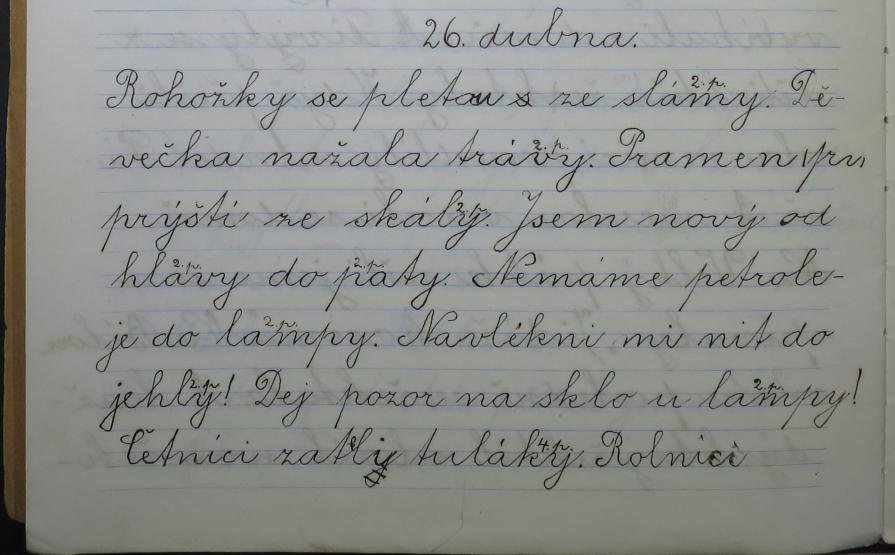 26. dubna.
Rohožky se pletou s ze slámy. 2. p. Dě-
večka nažala trávy. 2. p. Pramen (pru)
prýští ze skály. 2. p. Jsem nový od
hlavy 2. p. do paty. 2. p. Nemáme petrole-
je do lampy. 2. p. Navlékni mi nit do
jehly! 2. p. Dej pozor na sklo u lampy! 2. p.
Četníci zatkli tuláky. 4. p. Rolníci